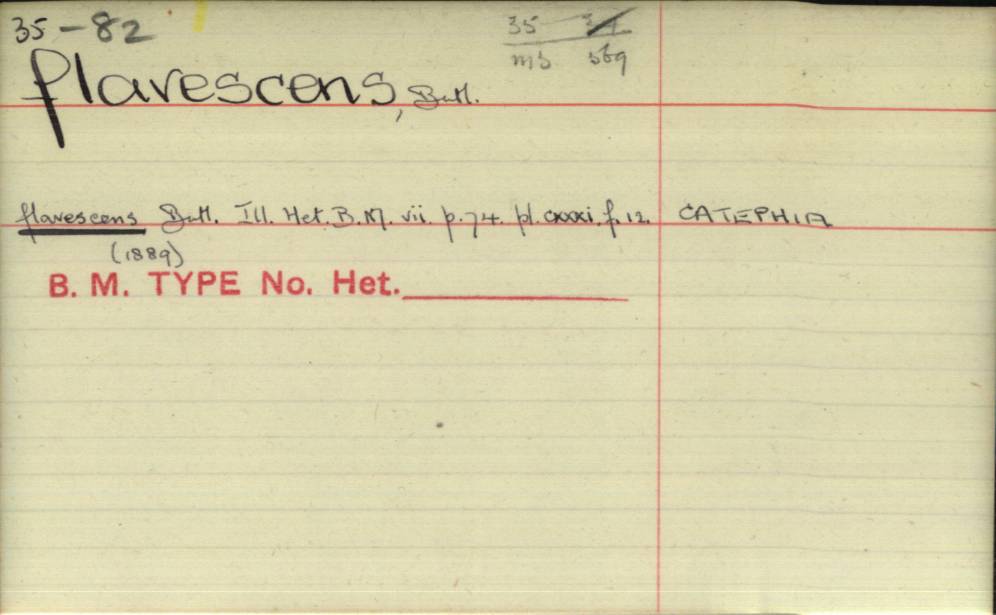 35-82
35 34
MS 569
flavescens, Butl.
flavescens Butl. Ill. Het. B.M. vii. p.74. pl. cxxxi. f.12. CATEPHIA
(1889)
B. M. TYPE No. Het.